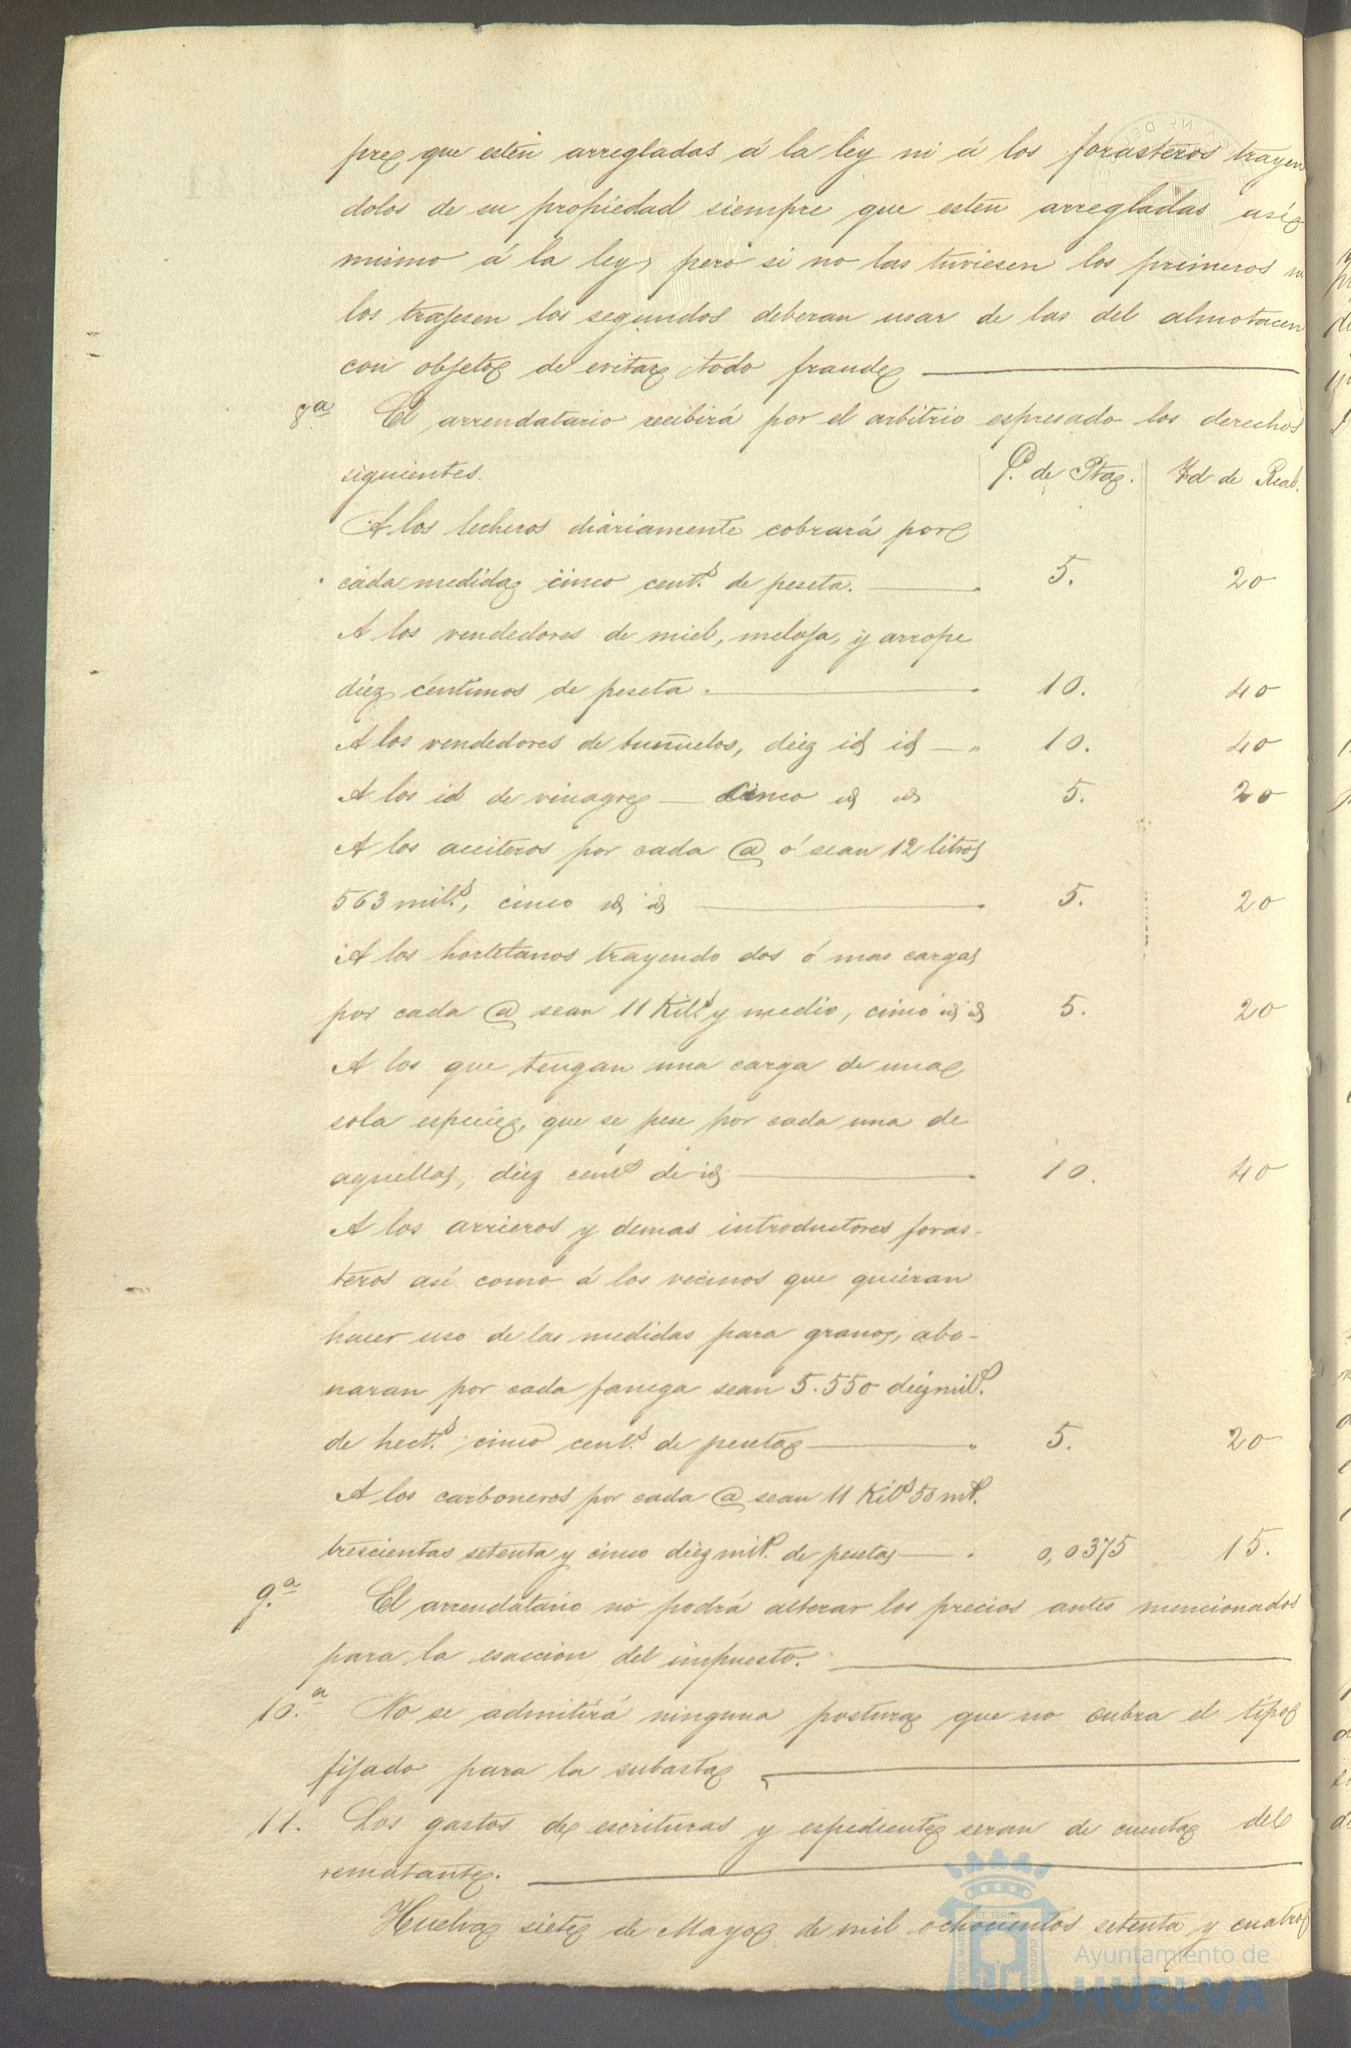 pre que esten arregladas á la ley ni á los forasteros trayen
dolos de su propiedad siempre que esten arregladas asi
mismo á la ley, pero si no las tuviesen los primeros ni
los trajesen los segundos deberan usar de las del almotacen
con objeto de evitar todo fraude
8ª El arrendatario recibirá por el arbitrio espresado los derechos
siguientes. C. de Ptas. Id de Real.
A los lecheros diariamente cobrará por
cada medida cinco cent.s de peseta. 5. 20
A los vendedores de miel, meloja, y arrope
diez centimos de peseta. 10. 40
A los vendedores de buñuelos, diez id id 10. 40
A los id de vinagre cinco id id 5. 20
A los aceiteros por cada @ ó sean 12 litros
563 mil.s, cinco id id 5. 20
A los hortelanos trayendo dos ó mas cargas
por cada @ sean 11 Kil.s y medio, cinco id id 5. 20
A los que tengan una carga de una
sola especie, que se pese por cada una de
aquellas, diez cent.s de id 10. 40
A los arrieros y demas introductores foras-
teros asi como á los vecinos que quieran
hacer uso de las medidas para granos, abo-
naran por cada fanega sean 5.550 diezmil.s
de hect.s cinco cent.s de peseta 5. 20
A los carboneros por cada @ sean 11 Kil.s 50 mil.s
trescientas setenta y cinco diezmil.s de pesetas 0,0375 15.
9.ª El arrendatario no podrá alterar los precios antes mencionados
para la esaccion del impuesto.
10.ª No se admitirá ninguna postura que no cubra el tipo
fijado para la subasta
11. Los gastos de escrituras y espediente seran de cuenta del
rematante.
Huelva siete de Mayo de mil ochocientos setenta y cuatro
Ayuntamiento de
HUELVA